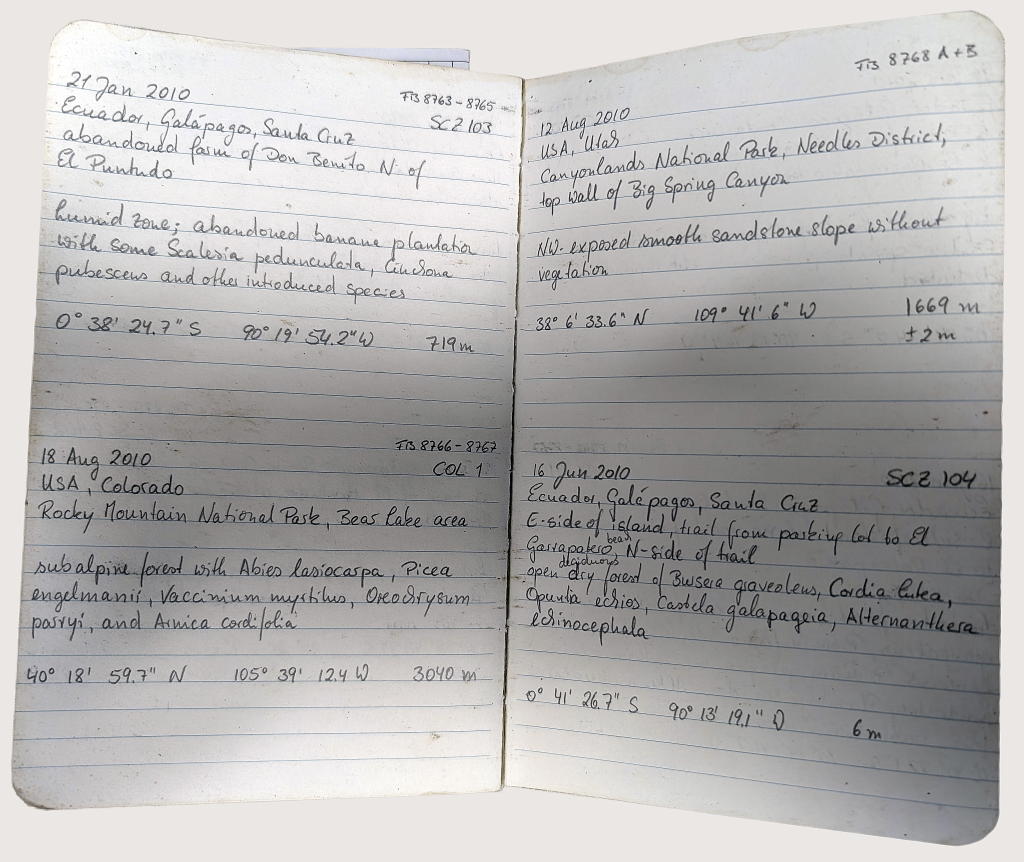 21 Jan 2010 FB 8763 - 8765
Ecuador, Galápagos, Santa Cruz SCZ 103
abandoned farm of Don Benito N of
El Puntudo
humid zone; abandoned banane plantation
with some Scalesia pedunculata, Cinchona
pubescens and other introduced species
0° 38' 24.7" S 90° 19' 54.2" W 719 m
18 Aug 2010 FB 8766 - 8767
USA, Colorado COL 1
Rocky Mountain National Park, Bear Lake area
subalpine forest with Abies lasiocarpa, Picea
engelmanii, Vaccinium myrtilus, Oreochrysum
parryi, and Arnica cordifolia
40° 18' 59.7" N 105° 39' 12.4 W 3040 m
FB 8768 A + B
12 Aug 2010
USA, Utah
Canyonlands National Park, Needles District,
top wall of Big Spring Canyon
NW-exposed smooth sandstone slope without
vegetation
38° 6' 33.6" N 109° 41' 6" W 1669 m
± 2 m
16 Jun 2010 SCZ 104
Ecuador, Galápagos, Santa Cruz
E-side of island, trail from parking lot to El
Garrapatero beach, N-side of trail
open dry deciduous forest of Bursera graveolens, Cordia lutea,
Opuntia echios, Castela galapageia, Alternanthera
echinocephala
0° 41' 26.7" S 90° 13' 19.1" W 6 m